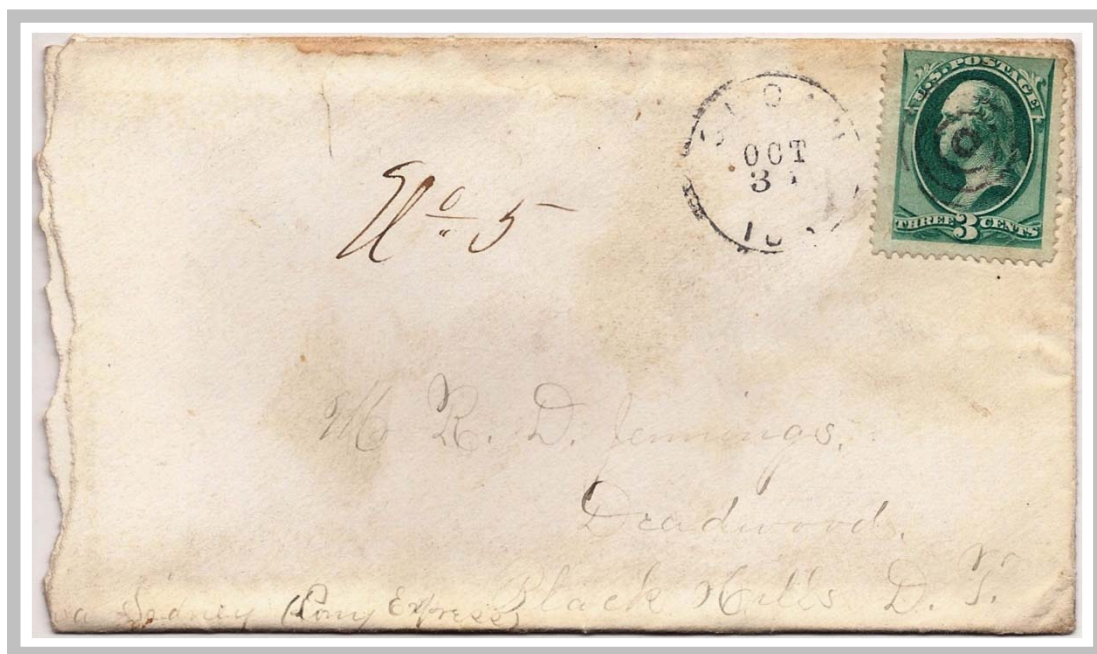 OCT
3
U.S. POSTAGE
THREE 3 CENTS
No 5
R. D. Jennings.
Deadwood.
Black Hills D. T.
Sidney (Pony Express)